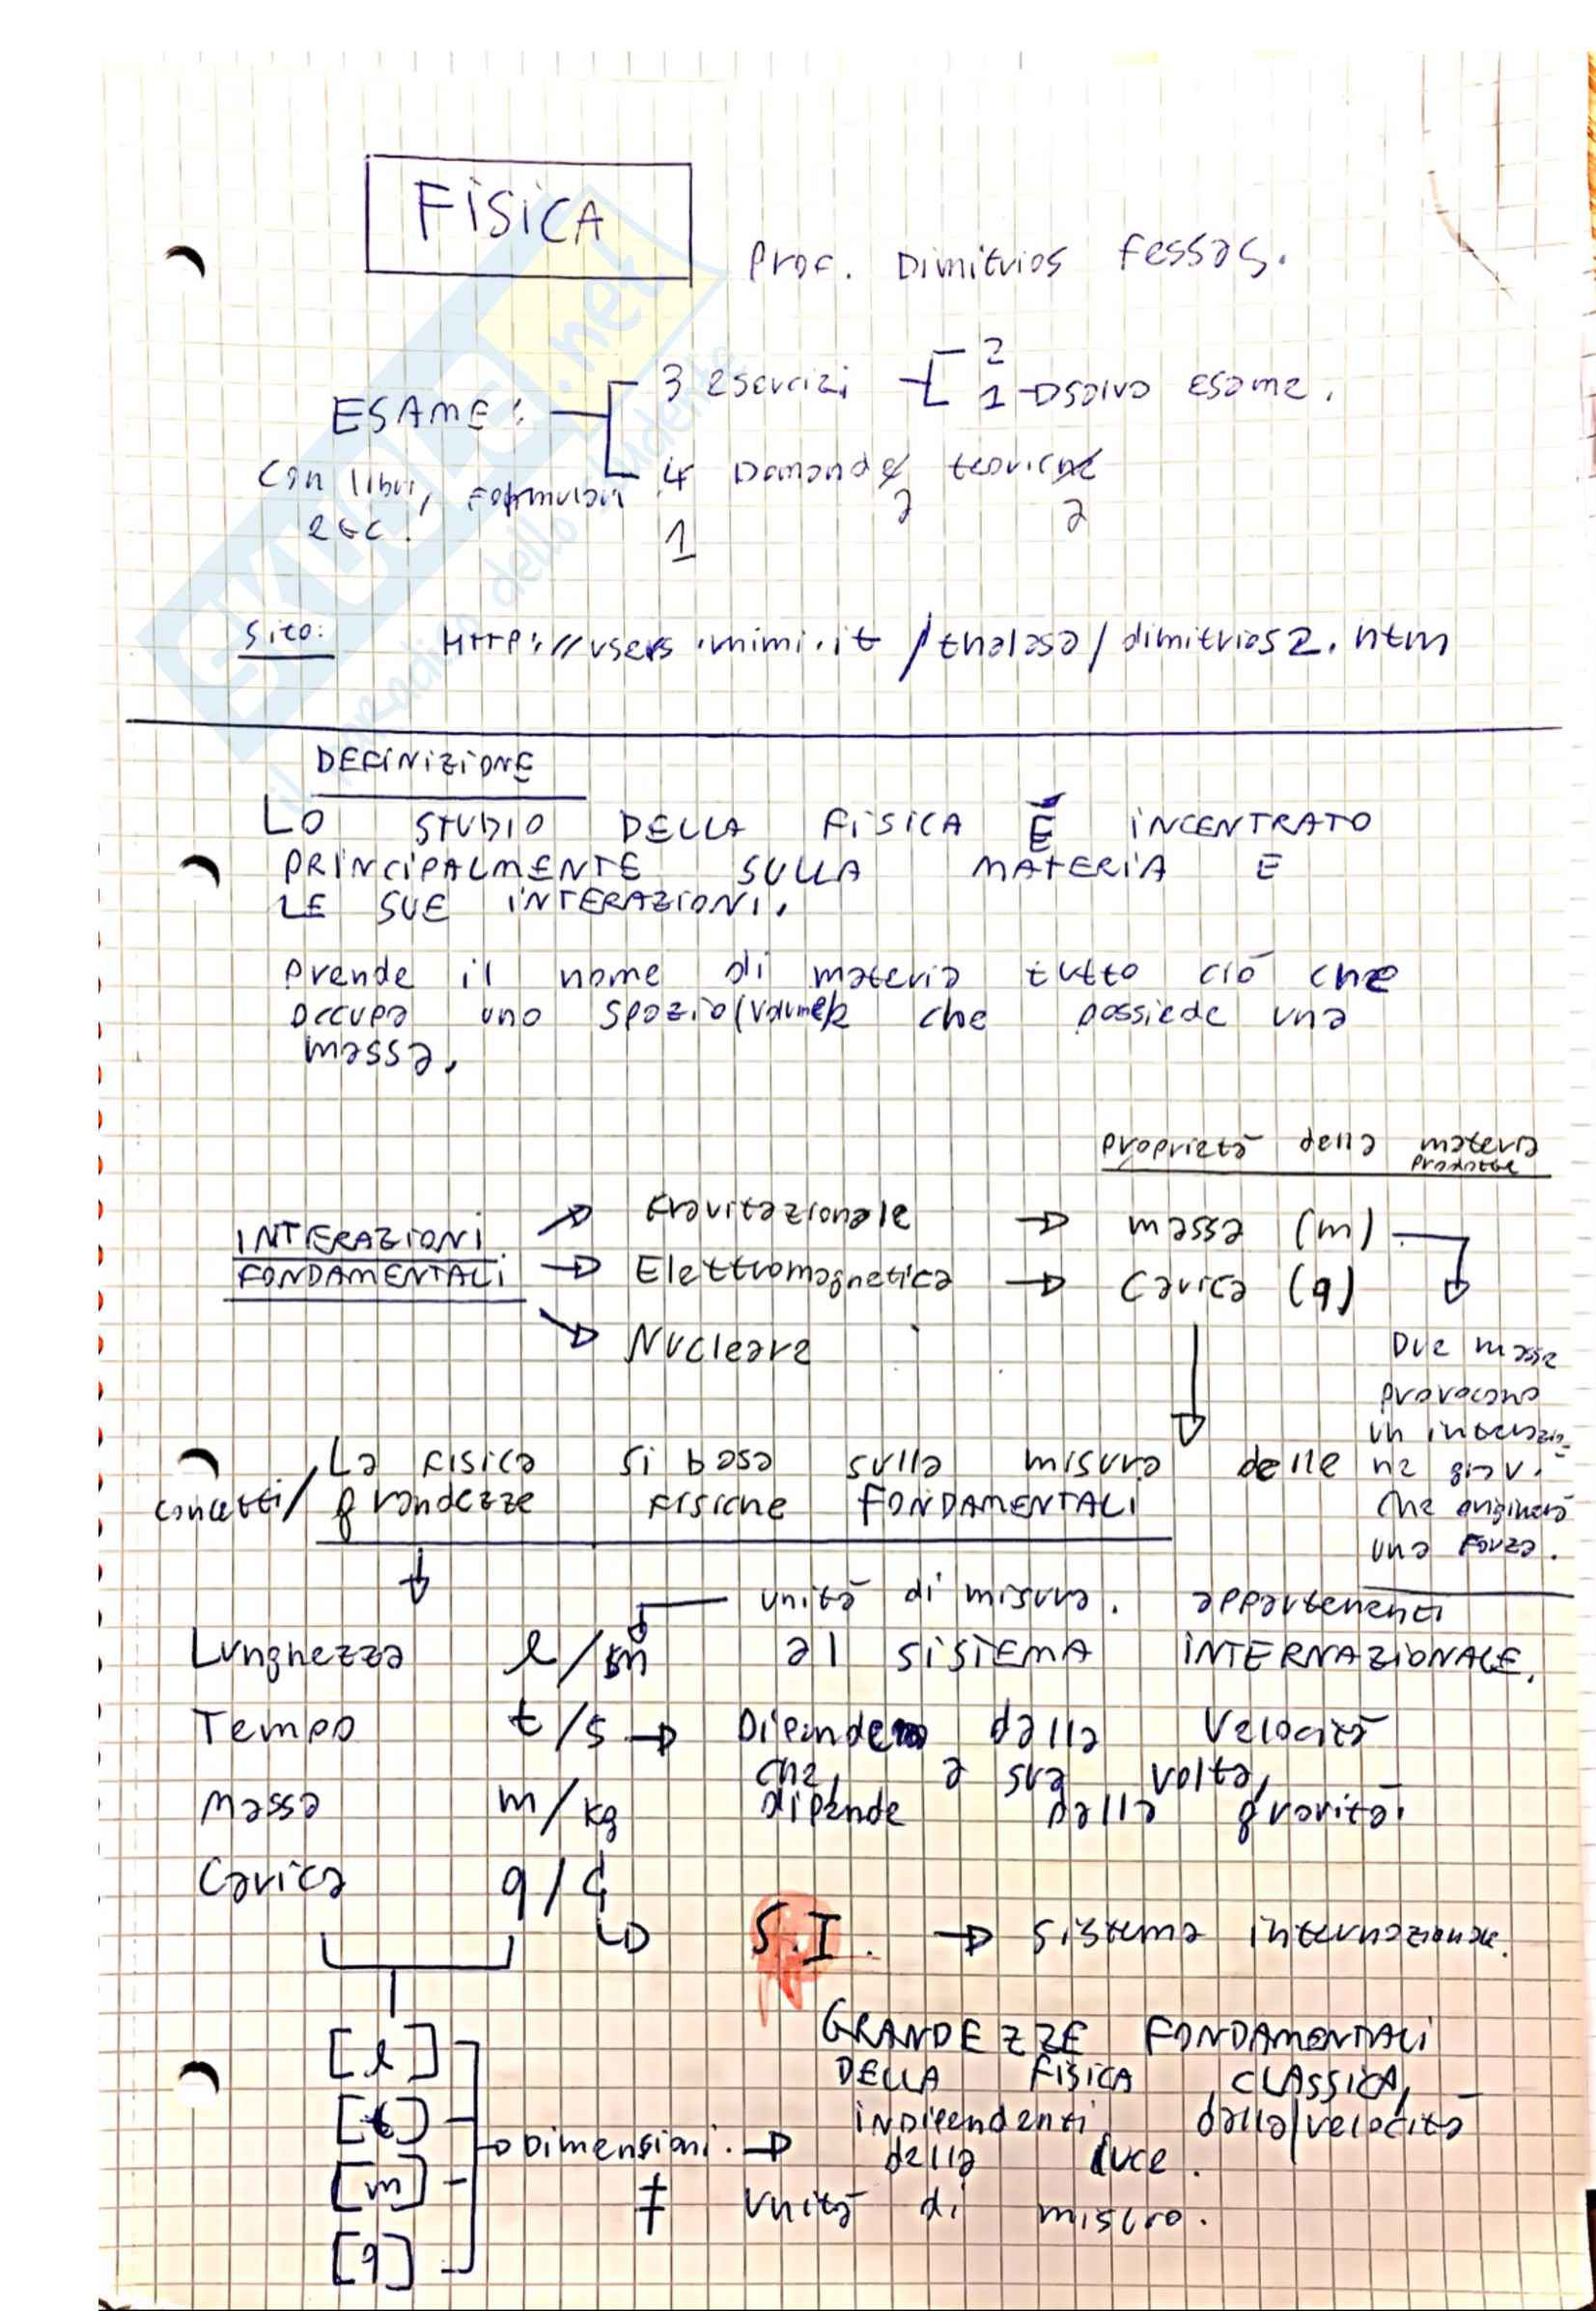 FISICA
Prof. Dimitrios Fessas.
3 esercizi
2
1 → salvo esame.
ESAME:
con libri, formulari
ecc.
4 Domande teoriche
a a
1
Sito: Http://users.mimi.it/thalasa/dimitrios2.htm
DEFINIZIONE
LO STUDIO DELLA FISICA É INCENTRATO
PRINCIPALMENTE SULLA MATERIA E
LE SUE INTERAZIONI.
Prende il nome di materia tutto ciò che
occupa uno spazio (volume) e che possiede una
massa.
Proprietà della materia
prodotte
INTERAZIONI
FONDAMENTALI
→ Gravitazionale → massa (m)
→ Elettromagnetica → Carica (q)
→ Nucleare
Due masse
provocano
un interazio-
ne grav.
che originerà
una forza.
concetti/
La fisica si basa sulla misura delle
grandezze fisiche FONDAMENTALI
unità di misura. appartenenti
Lunghezza l/m al SISTEMA INTERNAZIONALE.
Tempo t/s → Dipende dalla velocità
che, a sua volta,
Massa m/kg dipende dalla gravità.
Carica q/C
S.I. → Sistema internazionale.
[l]
[t]
[m]
[q]
GRANDEZZE FONDAMENTALI
DELLA FISICA CLASSICA,
indipendenti dalla velocità
→ Dimensioni. → della luce.
≠ unità di misura.
SKUOLA.net
il paradiso dello studente